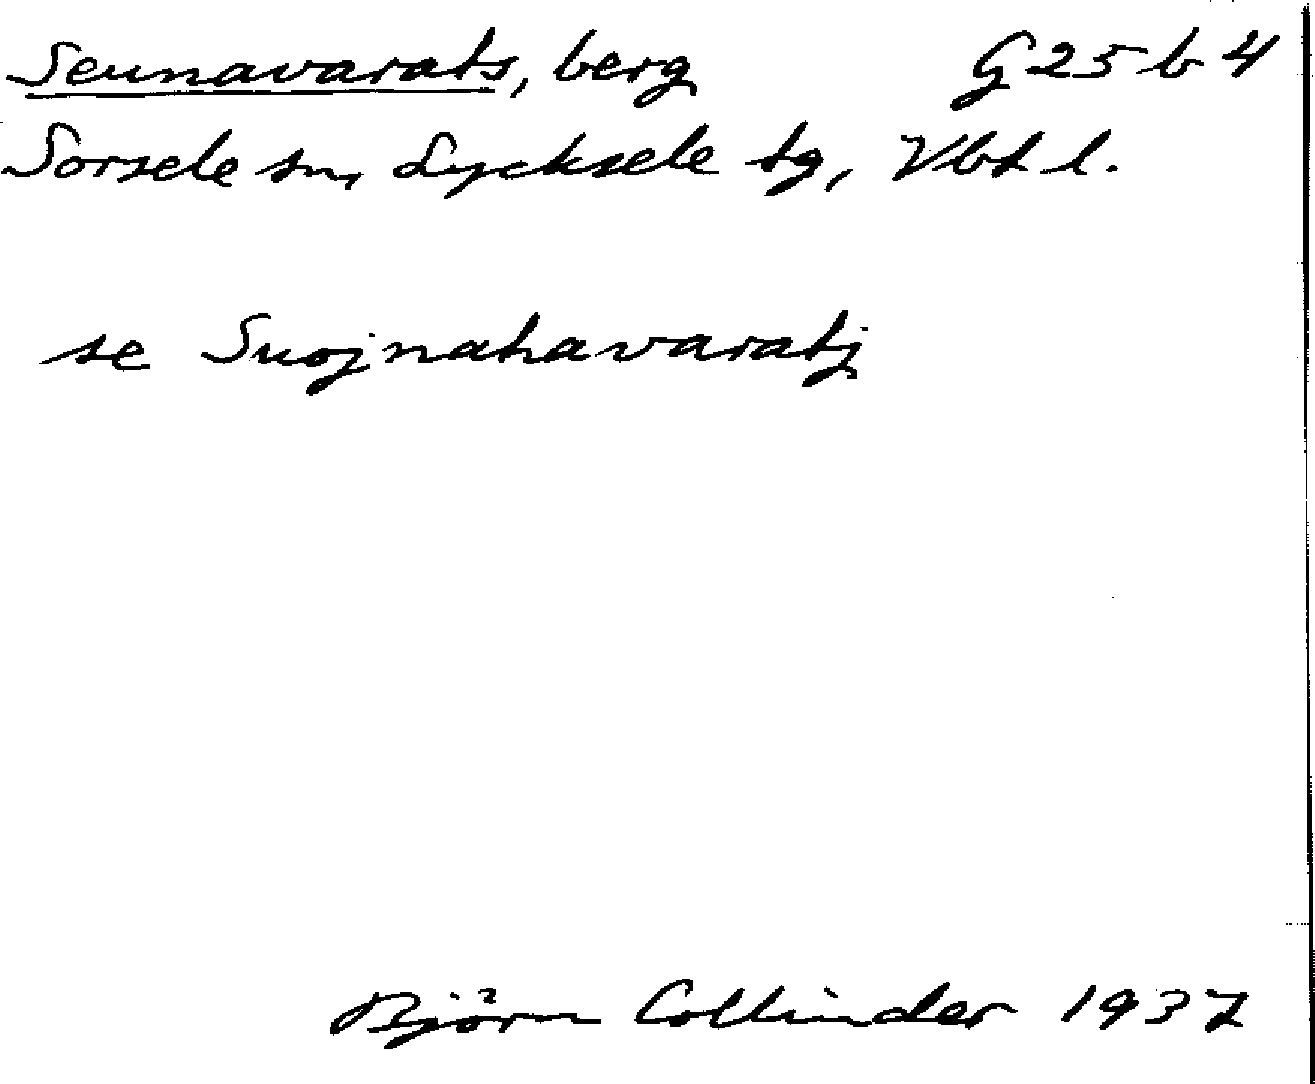 Seunavarats, berg G25 b 4
Sorsele sn, Lycksele tg, Vbt l.
se Suojnahavaratj
Björn Collinder 1937